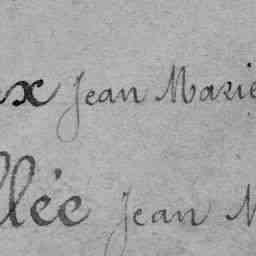 ex Jean Marie
llée Jean M